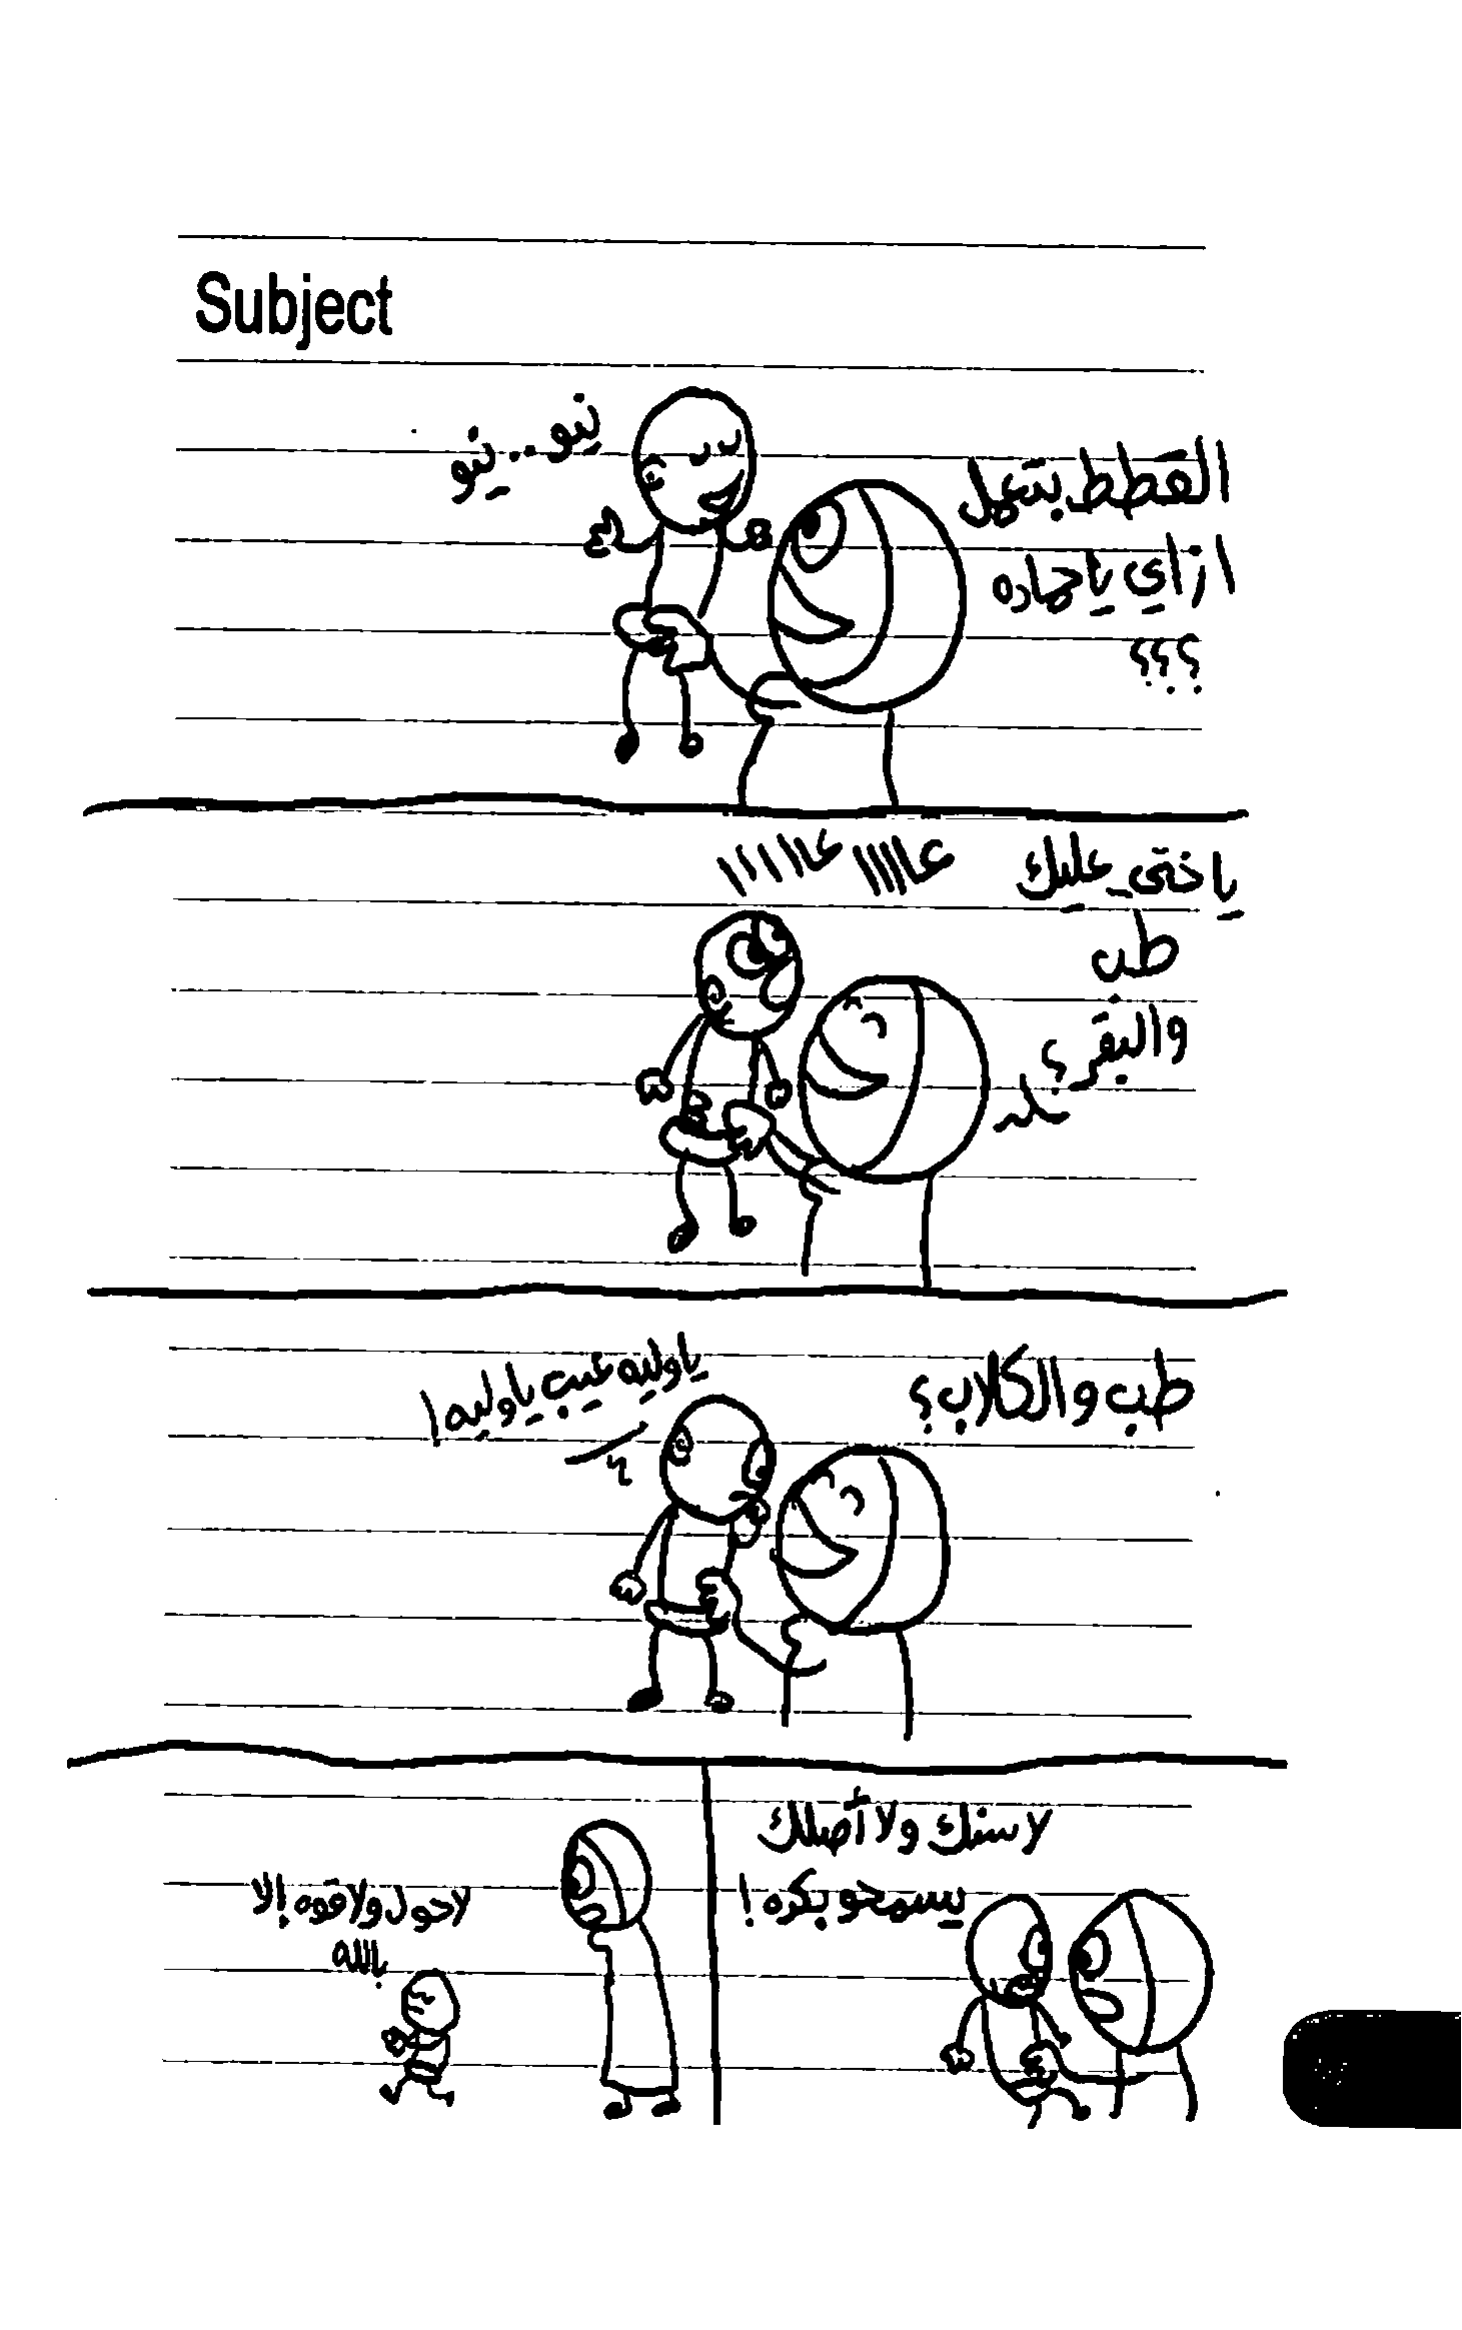 Subject
القطط بتعمل
ازاي يا حماده
؟؟؟
نيو.. نيو
ياختى عليك
طب
والبقر؟
عااااا عااااا
طب والكلاب؟
ياوليه عيب ياوليه!
لا سنك ولا أصلك
يسمحو بكده!
لا حول ولا قوه إلا
بالله